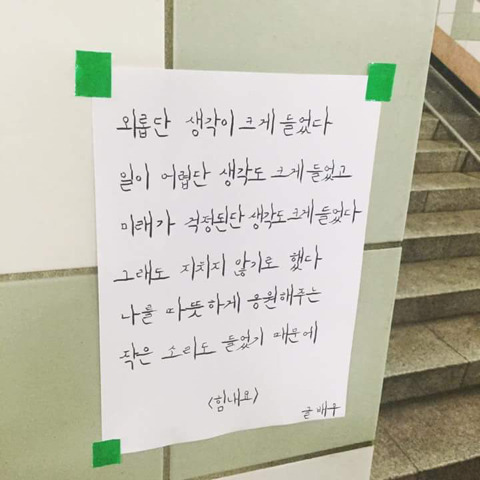 외롭단 생각이 크게 들었다
일이 어렵단 생각도 크게 들었고
미래가 걱정된단 생각도 크게 들었다
그래도 지치지 않기로 했다
나를 따뜻하게 응원해주는
작은 소리도 들었기 때문에
<힘내요>
글배우